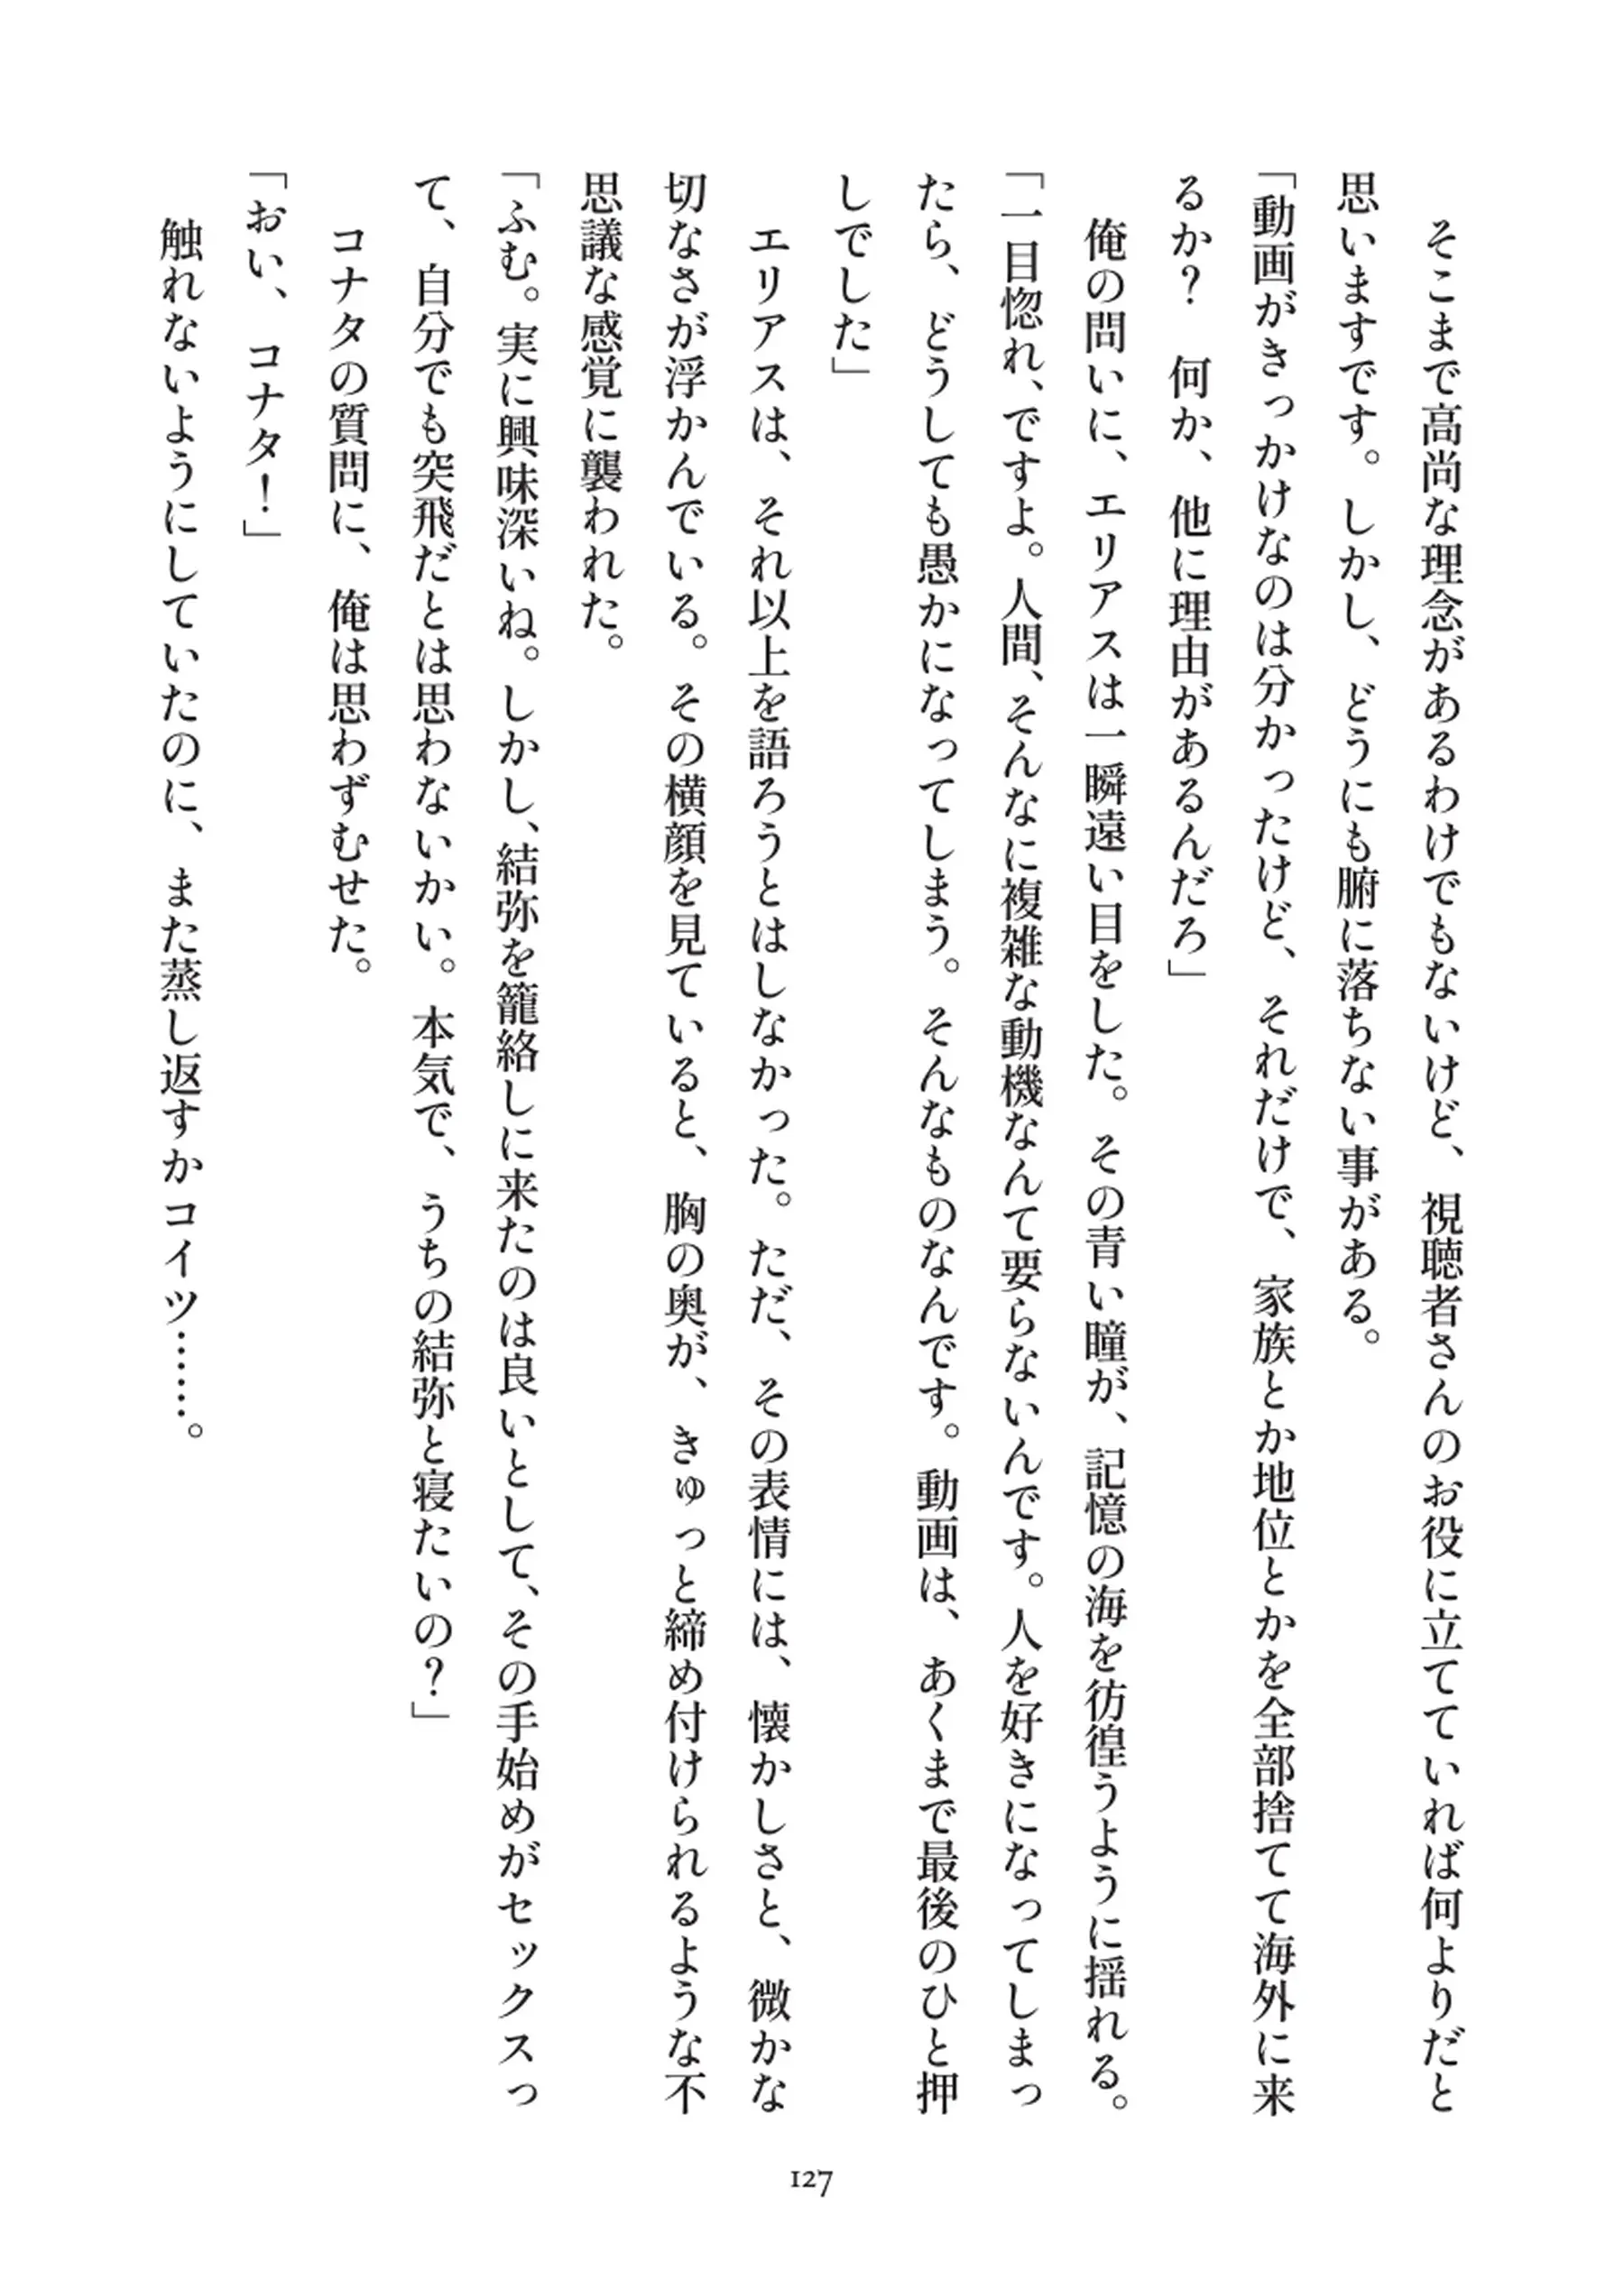 そこまで高尚な理念があるわけでもないけど、視聴者さんのお役に立てていれば何よりだと
思いますです。しかし、どうにも腑に落ちない事がある。
「動画がきっかけなのは分かったけど、それだけで、家族とか地位とかを全部捨てて海外に来
るか？　何か、他に理由があるんだろ」
　俺の問いに、エリアスは一瞬遠い目をした。その青い瞳が、記憶の海を彷徨うように揺れる。
「一目惚れ、ですよ。人間、そんなに複雑な動機なんて要らないんです。人を好きになってしまっ
たら、どうしても愚かになってしまう。そんなものなんです。動画は、あくまで最後のひと押
しでした」
　エリアスは、それ以上を語ろうとはしなかった。ただ、その表情には、懐かしさと、微かな
切なさが浮かんでいる。その横顔を見ていると、胸の奥が、きゅっと締め付けられるような不
思議な感覚に襲われた。
「ふむ。実に興味深いね。しかし、結弥を籠絡しに来たのは良いとして、その手始めがセックスっ
て、自分でも突飛だとは思わないかい。本気で、うちの結弥と寝たいの？」
　コナタの質問に、俺は思わずむせた。
「おい、コナタ！」
　触れないようにしていたのに、また蒸し返すかコイツ……。
127